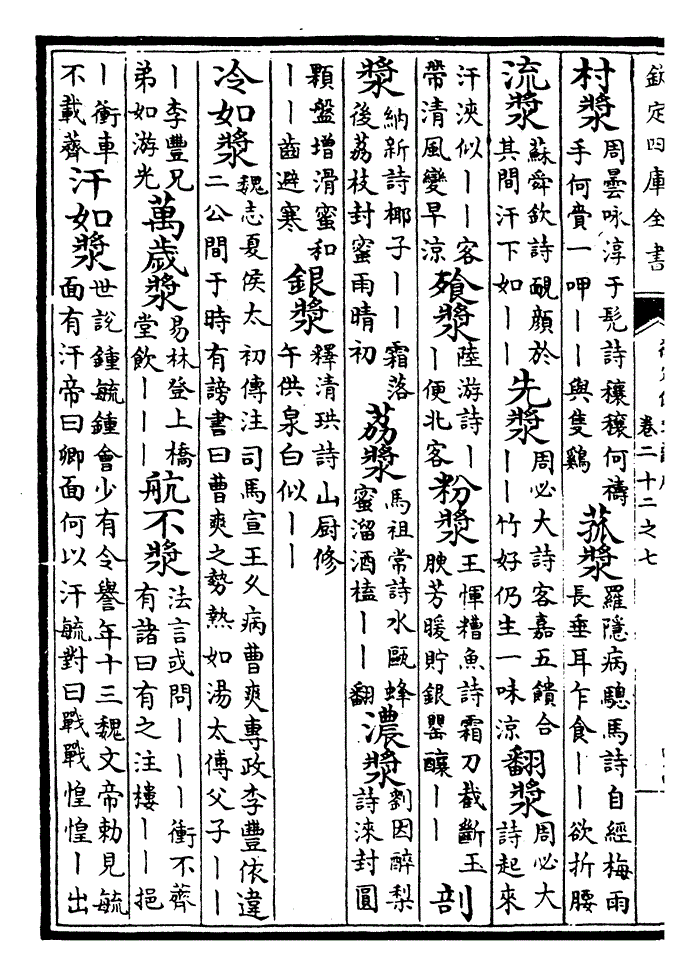 欽定四庫全書
卷二十二之七
村漿周曇咏淳于髡詩穰穰何禱手何賫一呷｜｜與隻鷄菰漿羅隱病驄馬詩自經梅雨長垂耳乍食｜｜欲折腰
流漿蘇舜欽詩靦顏於其間汗下如｜｜先漿周必大詩客嘉五饋合｜｜竹好仍生一味涼翻漿周必大詩起來
汗浹似｜｜客帶清風變早涼飱漿陸游詩｜｜便北客粉漿王惲糟魚詩霜刀截斷玉腴芳暖貯銀罌釀｜｜剖
漿納新詩椰子｜｜霜落後荔枝封蜜雨晴初荔漿馬祖常詩水甌蜂蜜溜酒榼｜｜翻濃漿劉因醉梨詩淶封圓
顆盤增滑蜜和｜｜齒避寒銀漿釋清珙詩山厨修午供泉白似｜｜
冷如漿魏志夏侯太初傳注司馬宣王久病曹爽專政李豐依違二公間于時有謗書曰曹爽之勢熱如湯太傅父子｜｜
｜李豐兄弟如游光萬歲漿易林登上橋堂飲｜｜｜航不漿法言或問｜｜｜衝不薺有諸曰有之注樓｜｜挹
｜衝車不載薺汗如漿世說鍾毓鍾會少有令譽年十三魏文帝勅見毓面有汗帝曰卿面何以汗毓對曰戰戰惶惶｜出